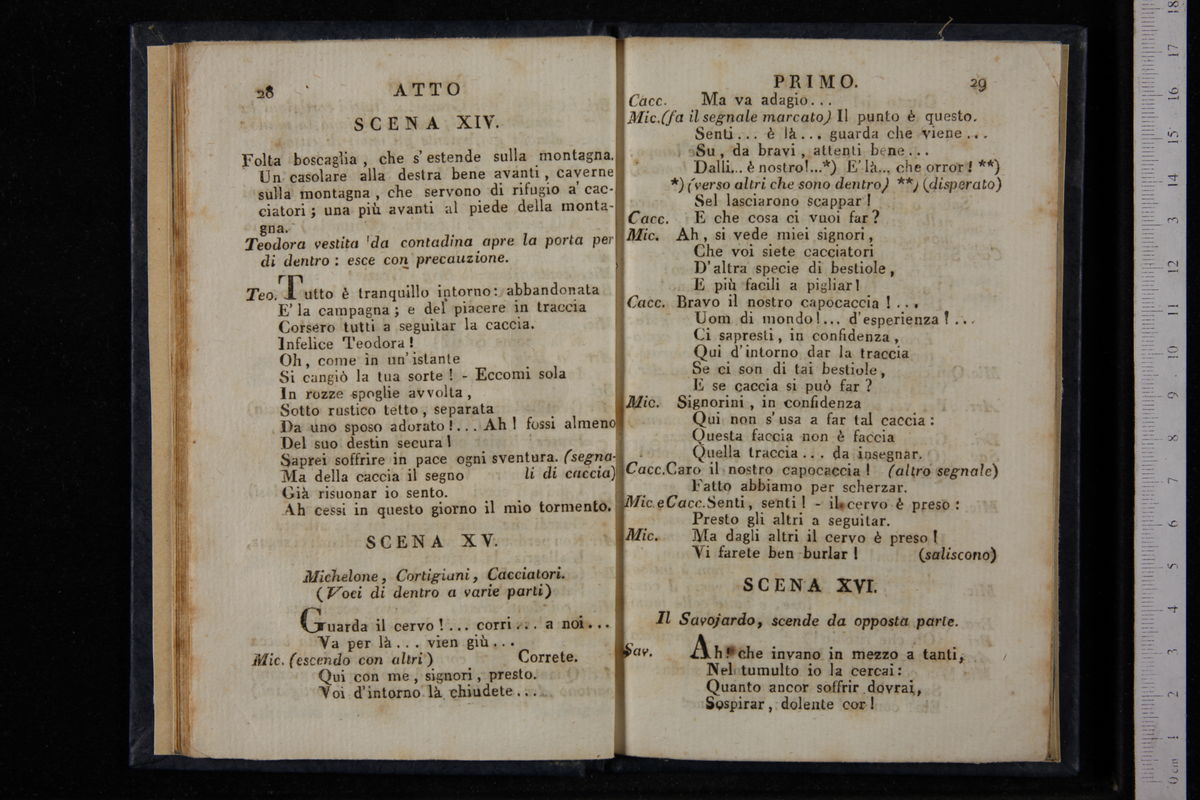 28 ATTO
SCENA XIV.
Folta boscaglia, che s'estende sulla montagna.
Un casolare alla destra bene avanti, caverne
sulla montagna, che servono di rifugio a' cac-
ciatori; una più avanti al piede della monta-
gna.
Teodora vestita 'da contadina apre la porta per
di dentro: esce con precauzione.
Teo. Tutto è tranquillo intorno: abbandonata
E' la campagna; e del piacere in traccia
Corsero tutti a seguitar la caccia.
Infelice Teodora!
Oh, come in un'istante
Si cangiò la tua sorte! - Eccomi sola
In rozze spoglie avvolta,
Sotto rustico tetto, separata
Da uno sposo adorato!... Ah! fossi almeno
Del suo destin secura!
Saprei soffrire in pace ogni sventura. (segna-
Ma della caccia il segno li di caccia)
Già risuonar io sento.
Ah cessi in questo giorno il mio tormento.
SCENA XV.
Michelone, Cortigiani, Cacciatori.
(Voci di dentro a varie parti)
Guarda il cervo!... corri... a noi...
Va per là... vien giù...
Mic. (escendo con altri) Correte.
Qui con me, signori, presto.
Voi d'intorno là chiudete...
PRIMO. 29
Cacc. Ma va adagio...
Mic. (fa il segnale marcato) Il punto è questo.
Senti... è là... guarda che viene...
Su, da bravi, attenti bene...
Dalli... è nostro!...*) E' là... che orror! **)
*) (verso altri che sono dentro) **) (disperato)
Sel lasciarono scappar!
Cacc. E che cosa ci vuoi far?
Mic. Ah, si vede miei signori,
Che voi siete cacciatori
D'altra specie di bestiole,
E più facili a pigliar!
Cacc. Bravo il nostro capocaccia!...
Uom di mondo!... d'esperienza!...
Ci sapresti, in confidenza,
Qui d'intorno dar la traccia
Se ci son di tai bestiole,
E se caccia si può far?
Mic. Signorini, in confidenza
Qui non s'usa a far tal caccia:
Questa faccia non è faccia
Quella traccia... da insegnar.
Cacc. Caro il nostro capocaccia! (altro segnale)
Fatto abbiamo per scherzar.
Mic. e Cacc. Senti, senti! - il cervo è preso:
Presto gli altri a seguitar.
Mic. Ma dagli altri il cervo è preso!
Vi farete ben burlar! (saliscono)
SCENA XVI.
Il Savojardo, scende da opposta parte.
Sav. Ah! che invano in mezzo a tanti,
Nel tumulto io la cercai:
Quanto ancor soffrir dovrai,
Sospirar, dolente cor!
0 cm 1 2 3 4 5 6 7 8 9 10 11 12 13 14 15 16 17 18